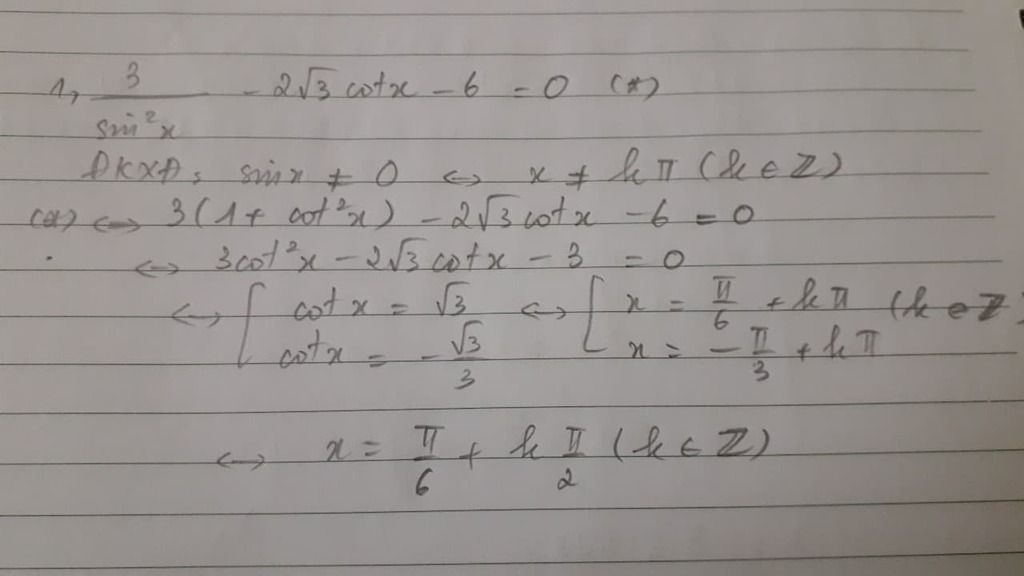 1, 3/sin²x - 2√3 cotx - 6 = 0 (*)
ĐKXĐ: sinx ≠ 0 <=> x ≠ kπ (k ∈ Z)
(*) <=> 3(1 + cot²x) - 2√3 cotx - 6 = 0
<=> 3cot²x - 2√3 cotx - 3 = 0
<=> [ cotx = √3 <=> [ x = π/6 + kπ (k ∈ Z)
cotx = -√3/3 x = -π/3 + kπ
<=> x = π/6 + k π/2 (k ∈ Z)